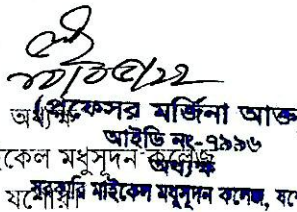 অধ্যক্ষ
(প্রফেসর মর্জিনা আক্ত
আইডি নং-৭৯৯৬
কেল মধুসূদন কলেজ
অধ্যক্ষ
যশোর।
সরকারি মাইকেল মধুসূদন কলেজ, যশো